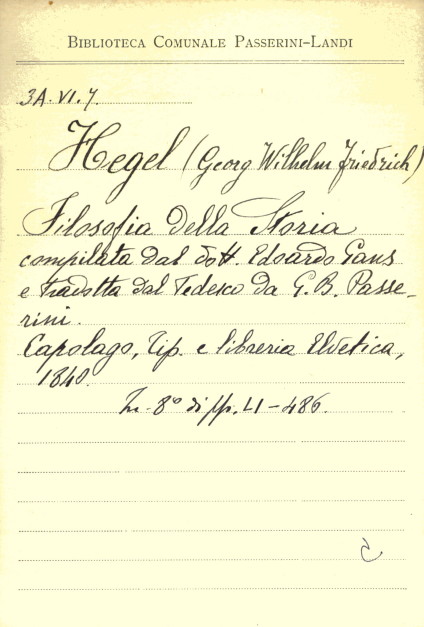 BIBLIOTECA COMUNALE PASSERINI-LANDI
3A.VI.7.
Hegel (Georg Wilhelm Friedrich)
Filosofia della Storia
compilata dal dott. Edoardo Gans
e tradotta dal Tedesco da G.B. Passe-
rini.
Capolago, Tip. e libreria Elvetica,
1840.
In-8° di pp. LI-486.